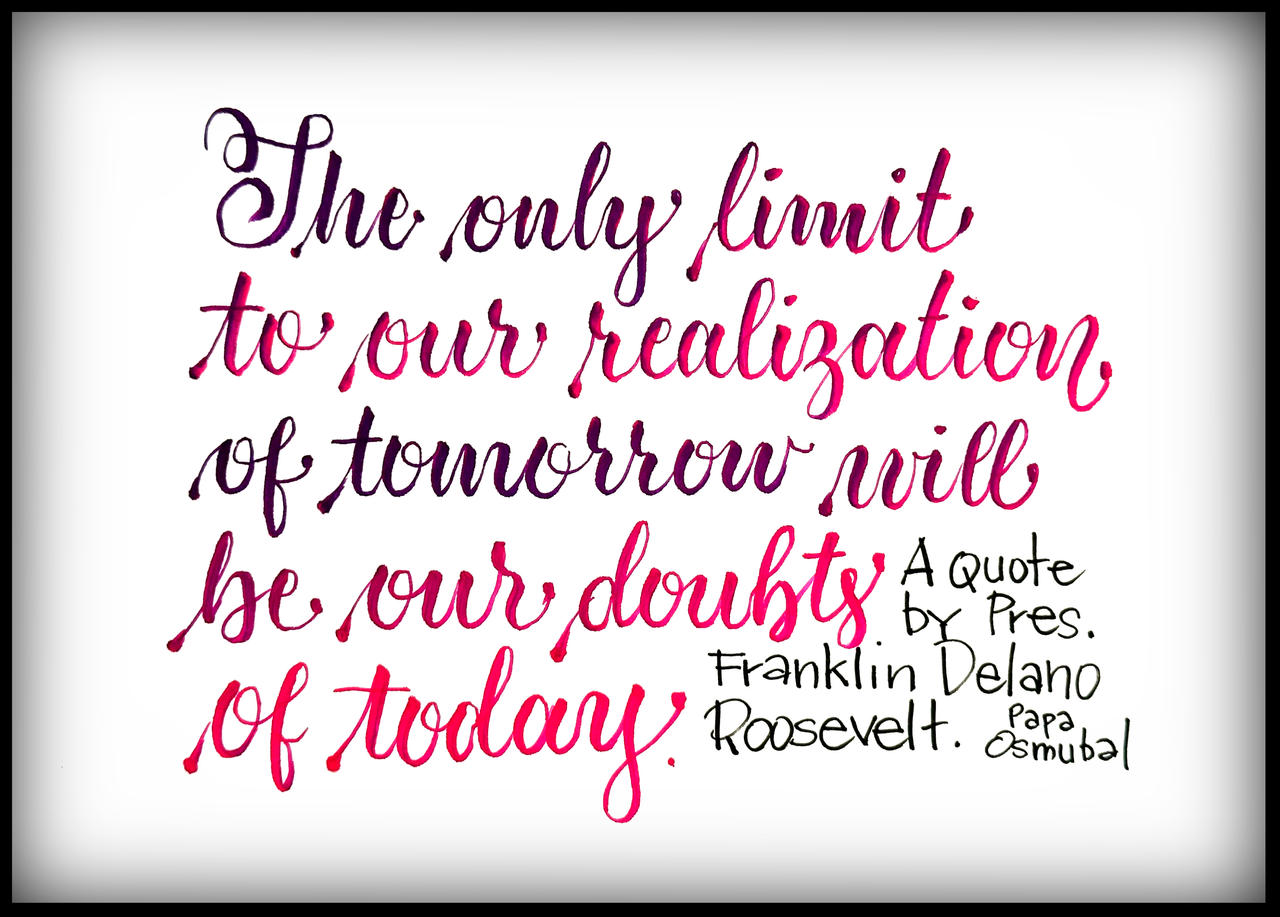 The only limit
to our realization
of tomorrow will
be our doubts
of today.
A Quote
by Pres.
Franklin Delano
Roosevelt.
Papa
Osmubal